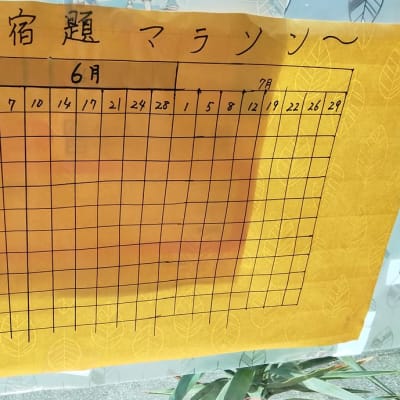 宿題マラソン〜
6月 7月
7 10 14 17 21 24 28 1 5 8 12 19 22 26 29